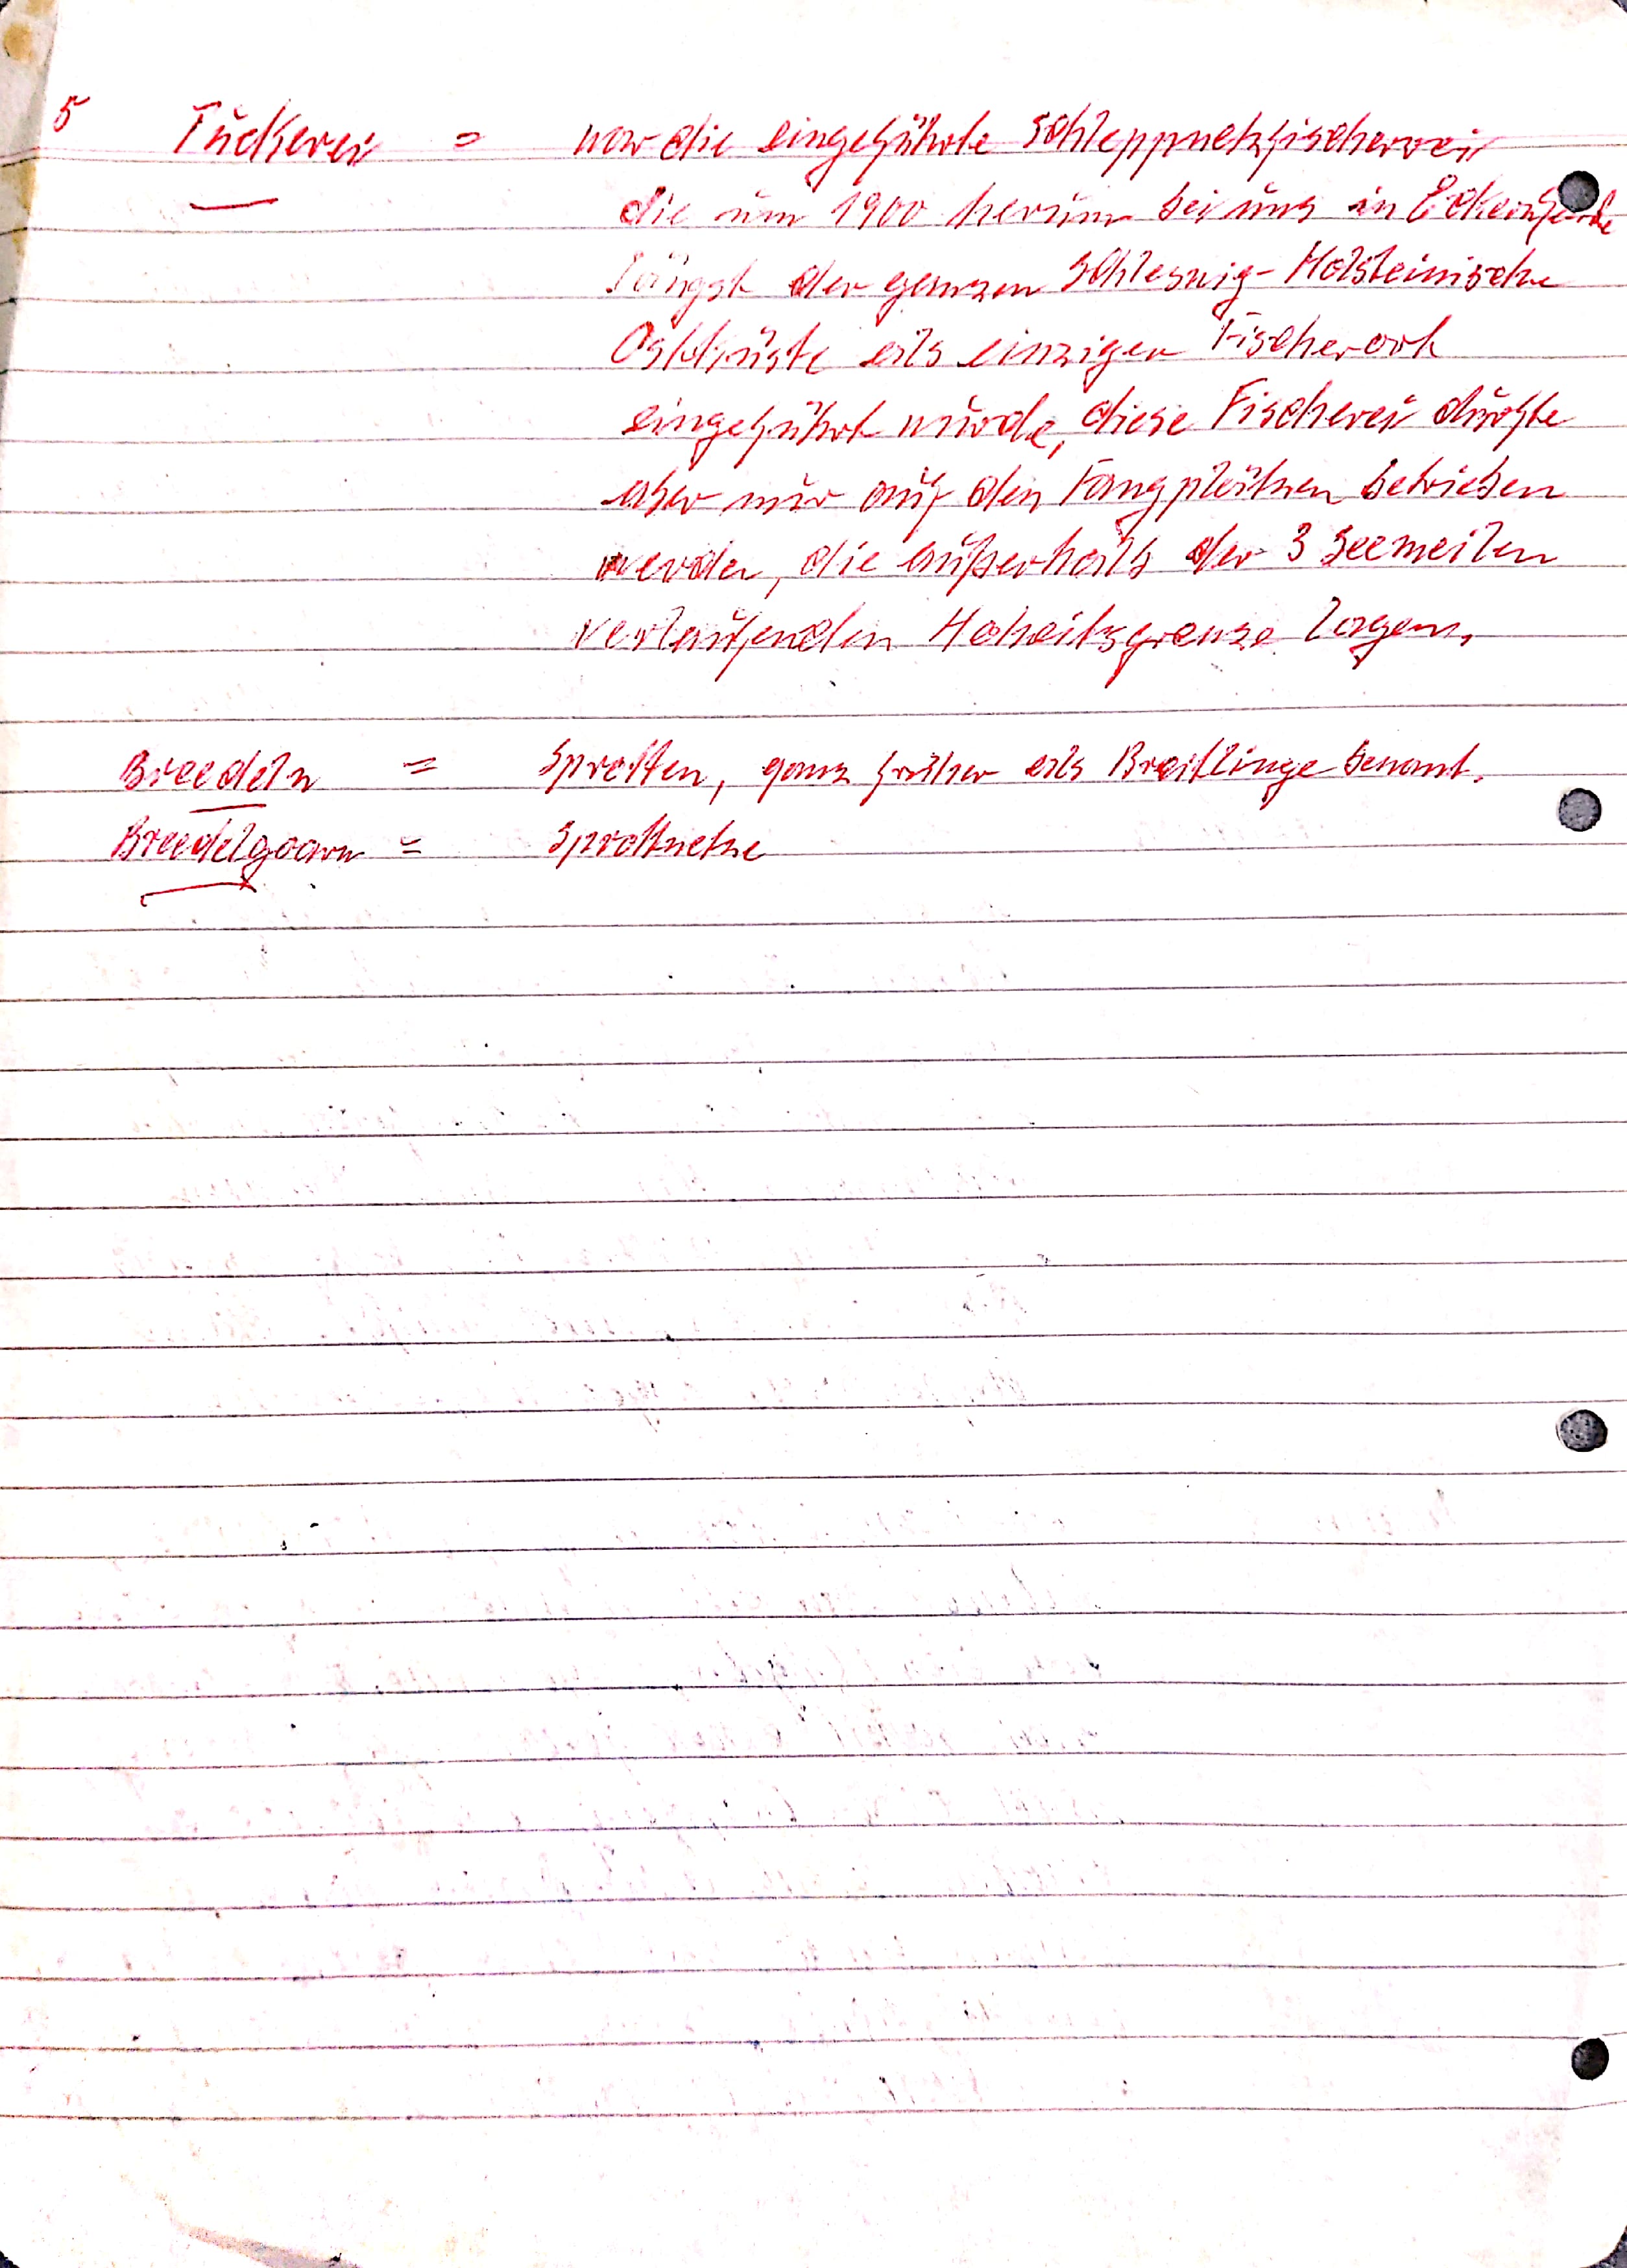 5 Tuckerei = war die eingeführte Schleppnetzfischerei
die um 1900 herum bei uns in Eckernförde
längst der ganzen Schleswig-Holsteinische
Ostküste als einziger Fischerort
eingeführt wurde, diese Fischerei durfte
aber nur auf den Fangplätzen betrieben
werden, die außerhalb der 3 Seemeilen
verlaufenden Hoheitsgrenze lagen.
Breedeln = Sprotten, ganz früher als Breitlinge benant.
Breedelgaarn = Sprottnetze